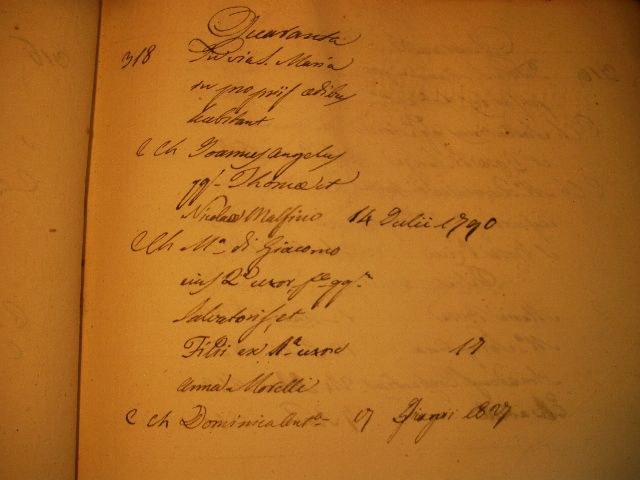 Quaranta
318 In via S. Maria
in propriis ædibus
habitant
C Ch Joannes Angelus
qq.m Thomæ et
Nicolaa Malfino 14 Julii 1790
C Ch M.a di Giacomo
eius 2.a uxor, f.a qq.m
Salvatoris, et
Filii ex 1.a uxore 17
Anna Morelli
C Ch Dominica Ant.a 17 1827